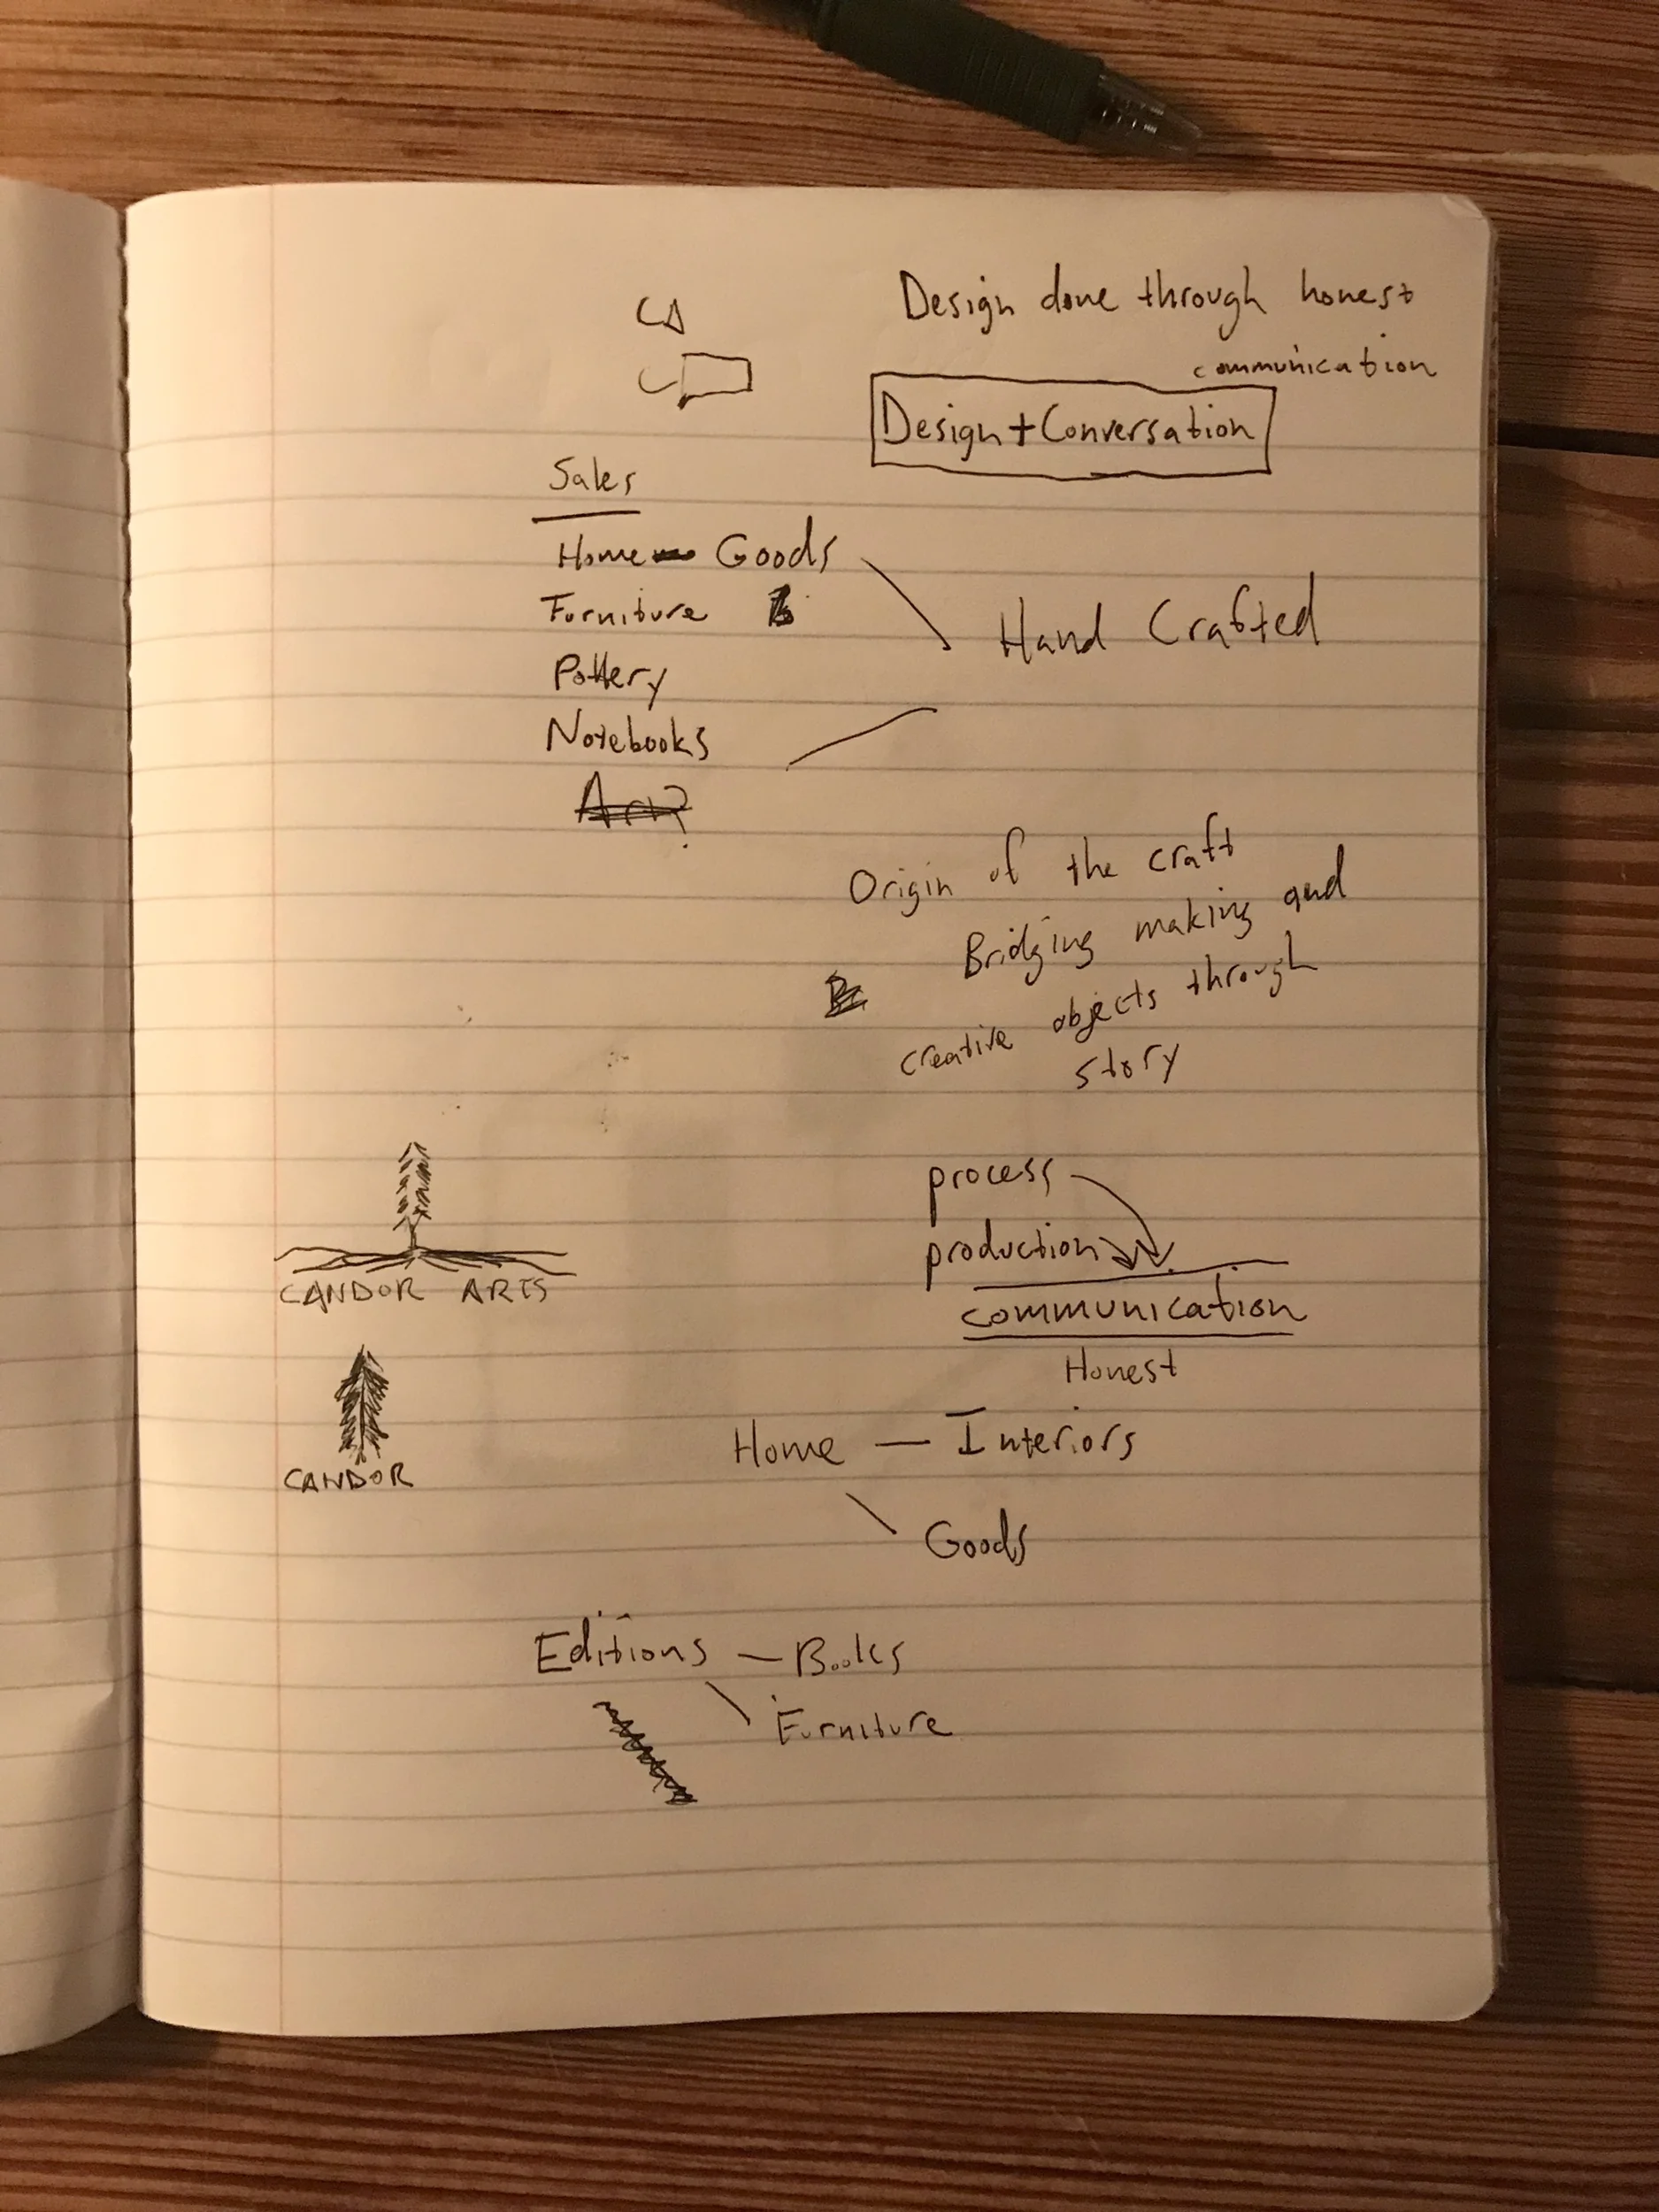 CA
Design done through honest
communication
Design + Conversation
Sales
Home Goods
Furniture
Pottery
Notebooks
Art?
Hand Crafted
Origin of the craft
Bridging making and
creative objects through
story
CANDOR ARTS
CANDOR
process
production
communication
Honest
Home — Interiors
Goods
Editions — Books
Furniture